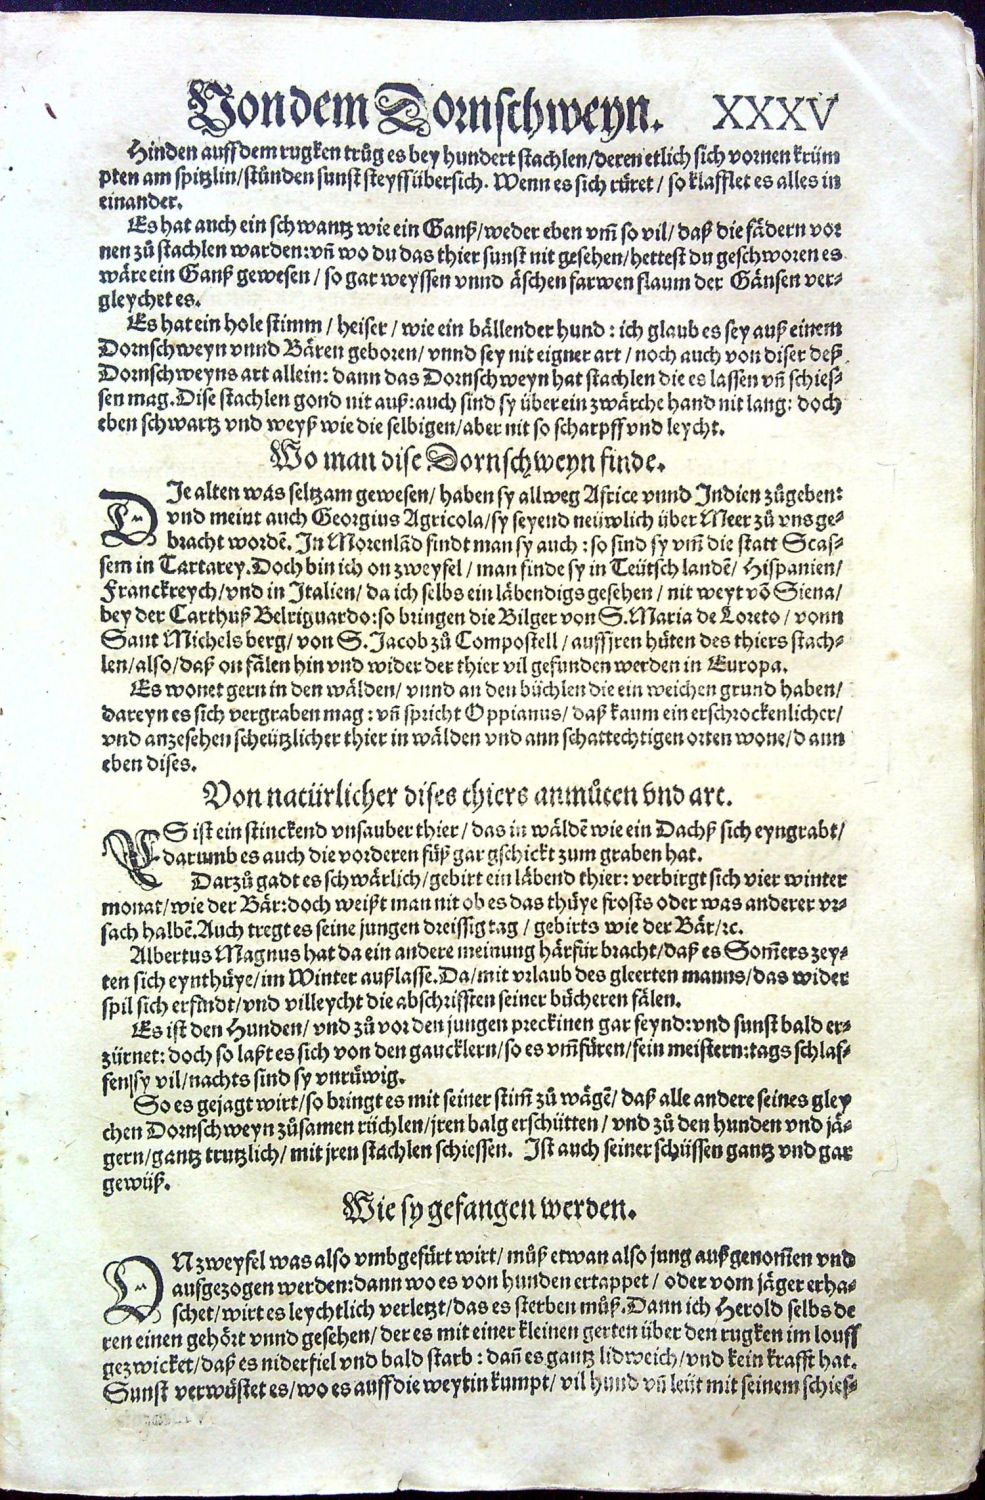 Von dem Dornschweyn. XXXV
Hinden auff dem rugken trůg es bey hundert stachlen/deren etlich sich vornen krüm
pten am spitzlin/stůnden sunst steyff übersich. Wenn es sich rüret/ so klafflet es alles in
einander.
Es hat auch ein schwantz wie ein Ganß/weder eben vm̃ so vil/ daß die fädern vor
nen zů stachlen warden:vñ wo du das thier sunst nit gesehen/hettest du geschworen es
wäre ein Ganß gewesen/ so gar weyssen vnnd äschen farwen flaum der Gänsen ver⸗
gleychet es.
Es hat ein hole stimm/ heiser/ wie ein bällender hund: ich glaub es sey auß einem
Dornschweyn vnnd Bären geboren/ vnnd sey nit eigner art/ noch auch von diser deß
Dornschweyns art allein: dann das Dornschweyn hat stachlen die es lassen vñ schies⸗
sen mag. Dise stachlen gond nit auß:auch sind sy über ein zwärche hand nit lang: doch
eben schwartz vnd weyß wie die selbigen/aber nit so scharpff vnd leycht.
Wo man dise Dornschweyn finde.
DJe alten was seltzam gewesen/ haben sy allweg Africe vnnd Indien zůgeben:
vnd meint auch Georgius Agricola/sy seyend neüwlich über Meer zů vns ge⸗
bracht wordẽ. In Morenlãd findt man sy auch: so sind sy vm̃ die statt Scas⸗
sem in Tartarey. Doch bin ich on zweyfel/ man finde sy in Teütsch landẽ/ Hispanien/
Franckreych/vnd in Italien/ da ich selbs ein läbendigs gesehen/ nit weyt võ Siena/
bey der Carthuß Belriguardo: so bringen die Bilger von S. Maria de Loreto/ vonn
Sant Michels berg/ von S. Jacob zů Compostell/ auff jren hüten des thiers stach⸗
len/also/ daß on fälen hin vnd wider der thier vil gefunden werden in Europa.
Es wonet gern in den wälden/ vnnd an den büchlen die ein weichen grund haben/
dareyn es sich vergraben mag: vñ spricht Oppianus/ daß kaum ein erschrockenlicher/
vnd anzesehen scheützlicher thier in wälden vnd ann schattechtigen orten wone/dann
eben dises.
Von natürlicher dises thiers anmůten vnd art.
ES ist ein stinckend vnsauber thier/ das in wäldẽ wie ein Dachß sich eyngrabt/
darumb es auch die vorderen füß gar gschickt zum graben hat.
Darzů gadt es schwärlich/gebirt ein läbend thier: verbirgt sich vier winter
monat/wie der Bär:doch weißt man nit ob es das thüye frosts oder was anderer vr⸗
sach halbẽ. Auch tregt es seine jungen dreissig tag/ gebirts wie der Bär/ꝛc.
Albertus Magnus hat da ein andere meinung härfür bracht/daß es Som̃ers zey⸗
ten sich eynthüye/im Winter außlasse. Da/mit vrlaub des gleerten manns/das wider
spil sich erfindt/vnd villeycht die abschrifften seiner bücheren fälen.
Es ist den Hunden/ vnd zů vor den jungen preckinen gar feynd:vnd sunst bald er⸗
zürnet: doch so laßt es sich von den gaucklern/so es vm̃füren/fein meistern:tags schlaf⸗
fen sy vil/nachts sind sy vnrüwig.
So es gejagt wirt/so bringt es mit seiner stim̃ zů wägẽ/ daß alle andere seines gley
chen Dornschweyn zůsamen rüchlen/jren balg erschütten/ vnd zů den hunden vnd jä⸗
gern/gantz trutzlich/ mit jren stachlen schiessen. Ist auch seiner schüssen gantz vnd gar
gewüß.
Wie sy gefangen werden.
ON zweyfel was also vmbgefürt wirt/ můß etwan also jung außgenom̃en vnd
aufgezogen werden:dann wo es von hunden ertappet/ oder vom jäger erha⸗
schet/wirt es leychtlich verletzt/das es sterben můß. Dann ich Herold selbs de
ren einen gehört vnnd gesehen/ der es mit einer kleinen gerten über den rugken im louff
gezwicket/daß es niderfiel vnd bald starb: dañ es gantz lidweich/vnd kein krafft hat.
Sunst verwüstet es/wo es auff die weytin kumpt/ vil hund vñ leüt mit seinem schies⸗